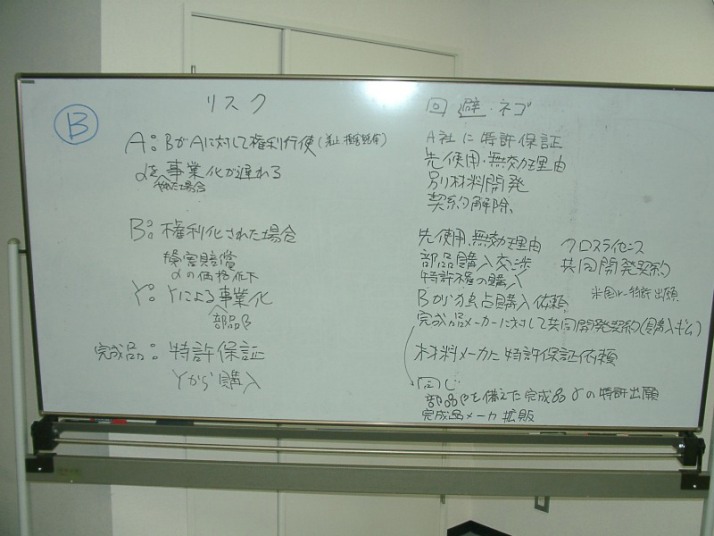 リスク
回避・ネゴ
B
A: BがAに対して権利行使(差止 損害賠償)
αを事業化が遅れる
された場合
B: 権利化された場合
損害賠償
αの価格低下
Y: Yによる事業化
部品β
完成品: 特許保証
Yから購入
A社に特許保証
先使用・無効理由
別材料開発
契約解除
先使用、無効理由 クロスライセンス
部品購入交渉 共同開発契約
特許不度の購入
米国への特許出願
Bから独占購入依頼
完成品メーカーに対して共同開発契約(購入ギム)
材料メーカに特許保証依頼
同じ
部品βを備えた完成品γの特許出願
完成品メーカ拡販